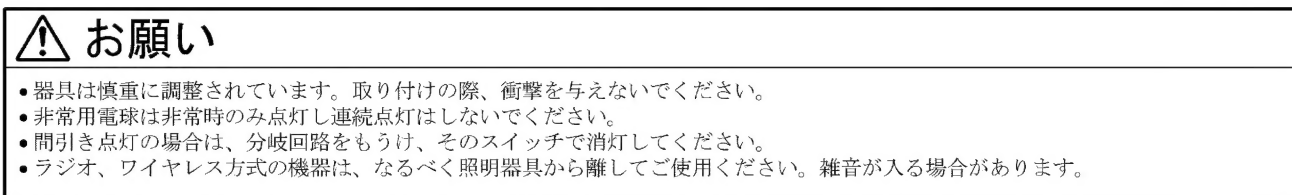 ⚠ お願い
•器具は慎重に調整されています。取り付けの際、衝撃を与えないでください。
•非常用電球は非常時のみ点灯し連続点灯はしないでください。
•間引き点灯の場合は、分岐回路をもうけ、そのスイッチで消灯してください。
•ラジオ、ワイヤレス方式の機器は、なるべく照明器具から離してご使用ください。雑音が入る場合があります。